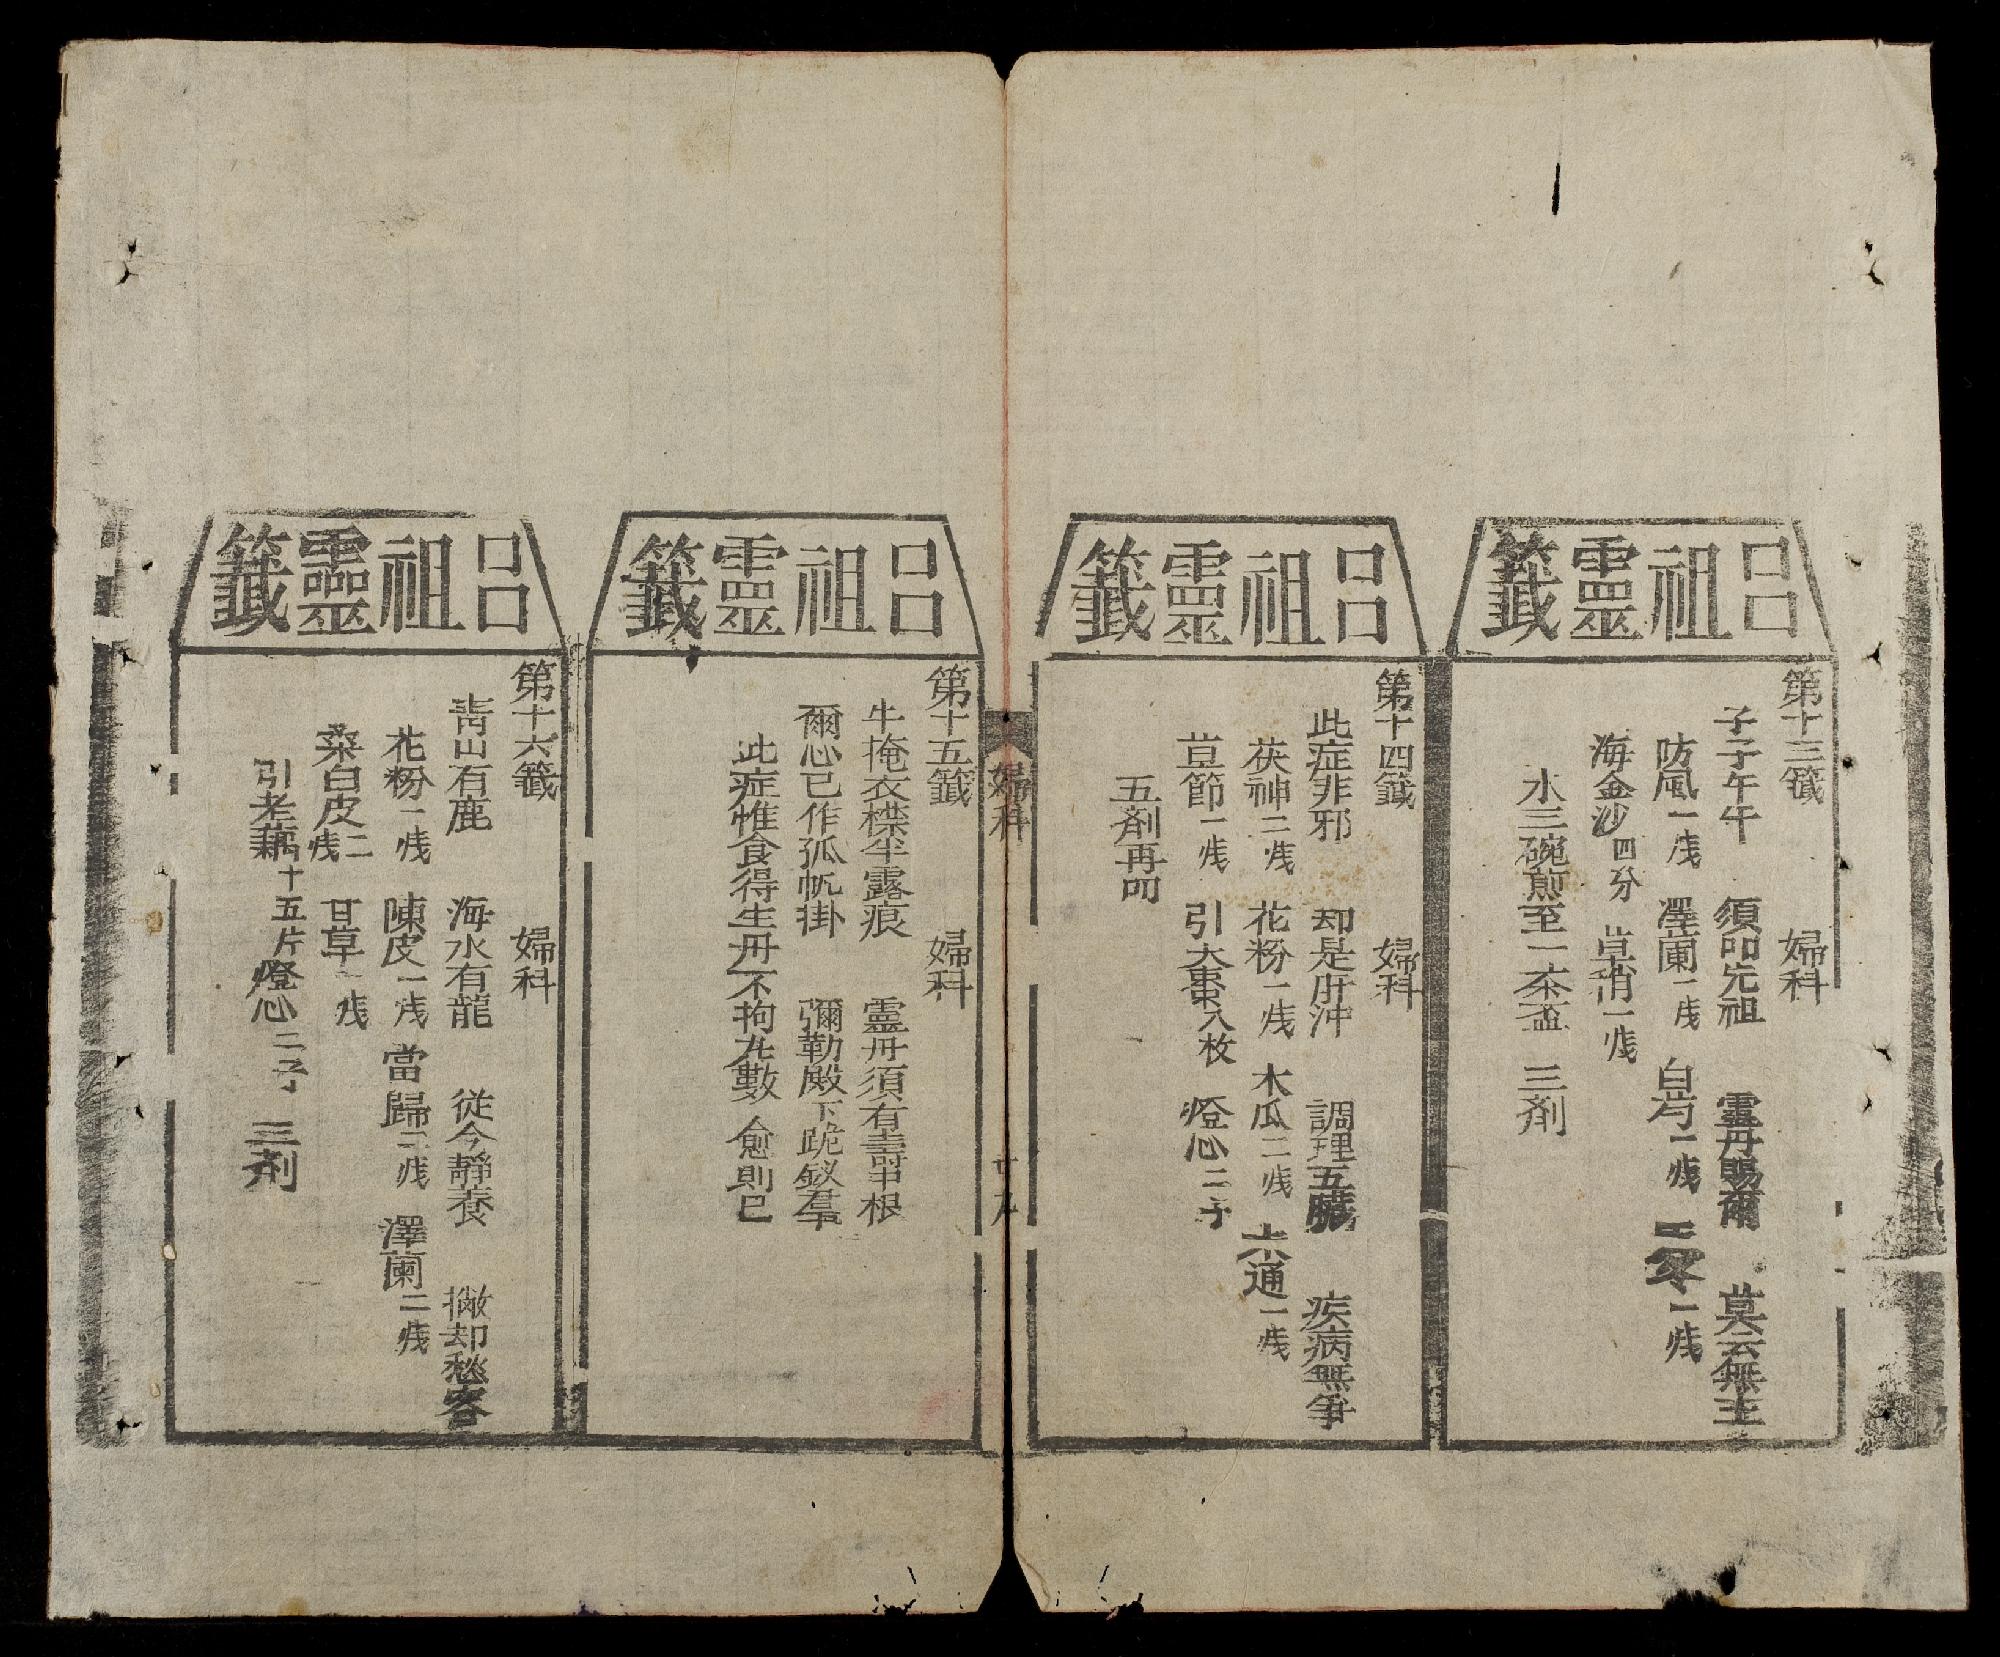 呂祖靈籤
第十三籤 婦科
子子午午 須叩先祖 靈丹賜爾 莫云無主
防風一戔 澤蘭一戔 白芍一戔 二苓一戔
海金沙四分 草稍一戔
水三碗煎至一茶盃 三剤
呂祖靈籤
第十四籤 婦科
此症非邪 却是肝沖 調理五臟 疾病無爭
茯神二戔 花粉一戔 木瓜二戔 木通一戔
荁節一戔 引大棗八枚 燈心二子
五剤再叩
婦科
呂祖靈籤
第十五籤 婦科
牛掩衣襟半露痕 靈丹須有壽中根
爾心已作孤帆掛 彌勒殿下跪釵羣
此症惟食得生丹不拘九數 愈則已
呂祖靈籤
第十六籤 婦科
青山有鹿 海水有龍 從今靜養 撇却愁客
花粉一戔 陳皮一戔 當歸二戔 澤蘭二戔
桑白皮二戔 甘草一戔
引老藕十五片 燈心二子 三剤